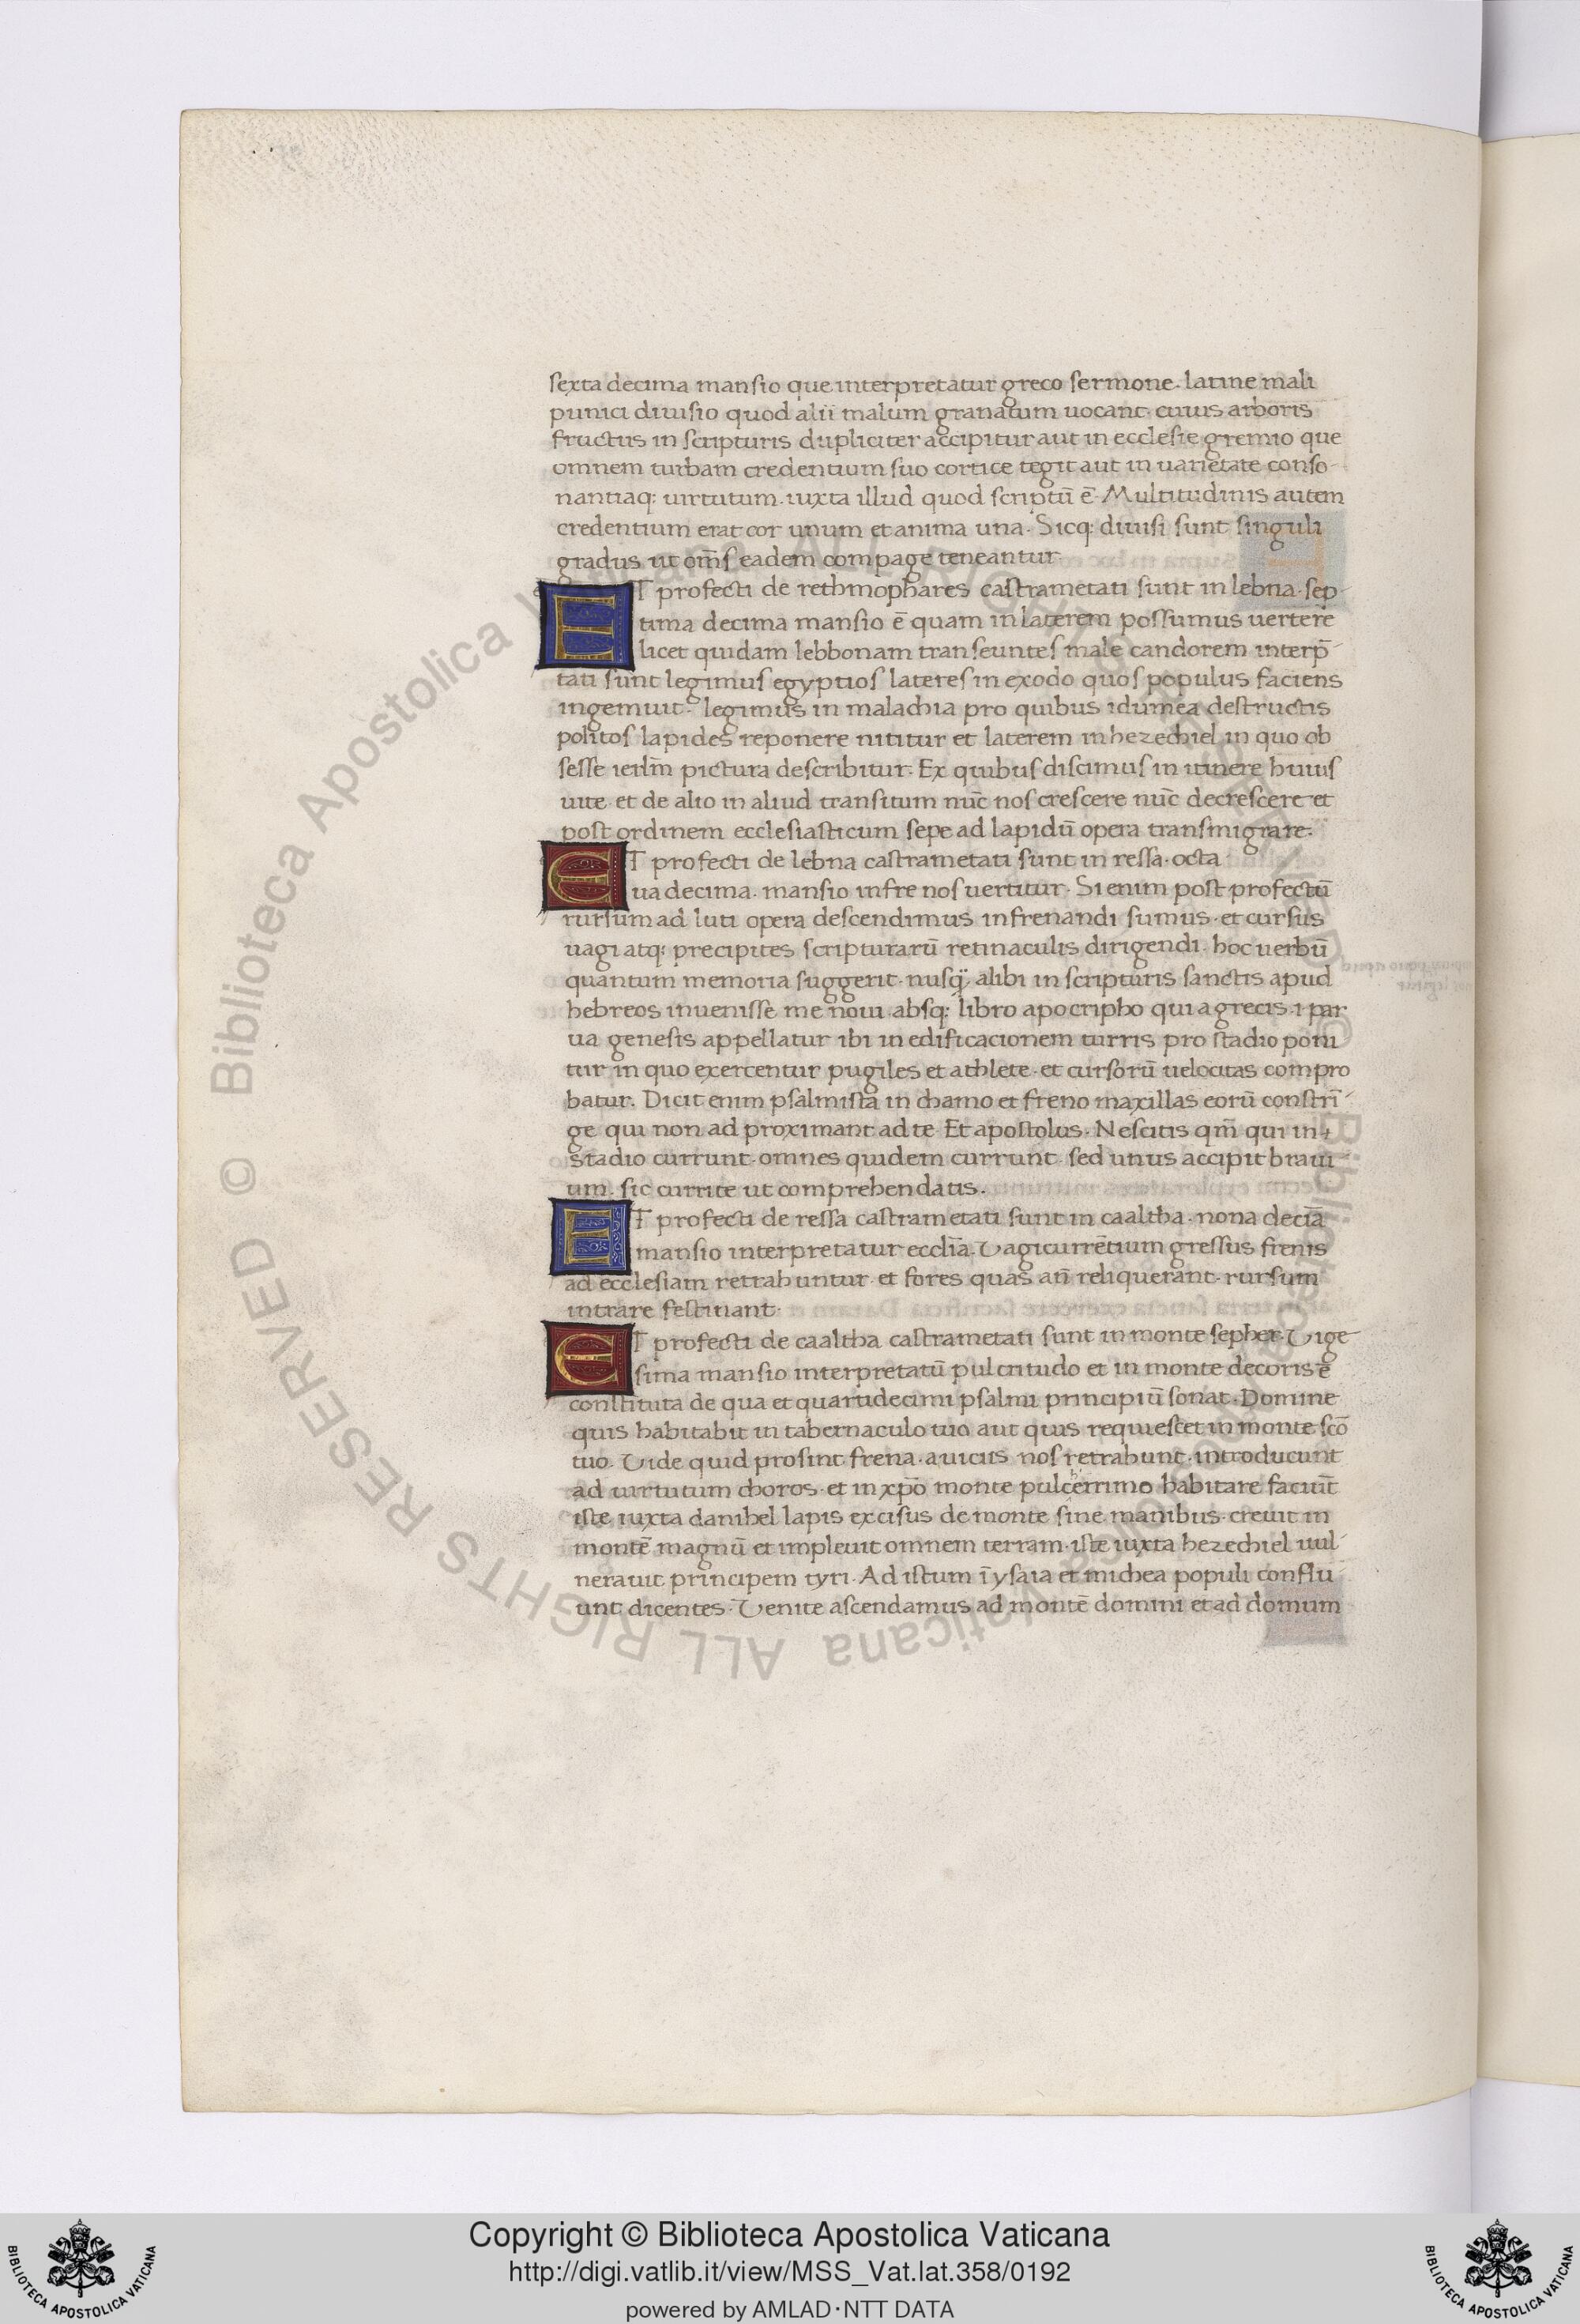 sexta decima mansio que interpretatur greco sermone. latine mali
punici diuisio quod alii malum granatum uocant. cuius arboris
fructus in scripturis dupliciter accipitur aut in ecclesie gremio que
omnem turbam credentium suo cortice tegit aut in uarietate conso-
nantiaq: uirtutum. iuxta illud quod scriptū ē. Multitudinis autem
credentium erat cor unum et anima una. Sicq: diuisi sunt singuli
gradus ut om̄s eadem compage teneantur
ET profecti de rethmophares castrametati sunt in lebna. sep-
tima decima mansio ē quam in laterem possumus uertere
licet quidam lebbonam transeuntes male candorem interp̄-
tati sunt legimus egyptios lateres in exodo quos populus faciens
ingemuit. legimus in malachia pro quibus idumea destructis
politos lapides reponere nititur et laterem in hezechiel in quo ob
sesse ierl̄m pictura describitur. Ex quibus discimus in itinere huius
uite. et de alio in aliud transitum nūc nos crescere nūc decrescere et
post ordinem ecclesiasticum sepe ad lapidū opera transmigrare.
ET profecti de lebna castrametati sunt in ressa. octa
ua decima. mansio infrenos uertitur. Si enim post profectū
rursum ad luti opera descendimus infrenandi sumus. et cursus
uagi atq: precipites scripturarū retinaculis dirigendi. hoc uerbū
quantum memoria suggerit. nusq̄ alibi in scripturis sanctis apud
hebreos inuenisse me noui. absq: libro apocripho qui a grecis .i. par
ua genesis appellatur ibi in edificacionem turris pro stadio poni
tur in quo exercentur pugiles et athlete. et cursorū uelocitas compro
batur. Dicit enim psalmista in chamo et freno maxillas eorū constrī-
ge qui non ad proximant ad te. Et apostolus. Nescitis qm̄ qui in
stadio currunt. omnes quidem currunt. sed unus accipit braui-
um. sic currite ut comprehendatis.
ET profecti de ressa castrametati sunt in caaltha. nona deciā
mansio interpretatur ecclīa. Vagi currētium gressus frenis
ad ecclesiam retrahuntur. et fores quas an̄ reliquerant. rursum
intrare festinant.
ET profecti de caaltha castrametati sunt in monte sepher. Vige-
sima mansio interpretatū pulcritudo et in monte decoris ē
constituta de qua et quartidecimi psalmi principiū sonat. Domine
quis habitabit in tabernaculo tuo aut quis requiescet in monte scō
tuo. Vide quid prosint frena. a uiciis nos retrahunt. introducunt
ad uirtutum choros. et in xp̄o monte pulcherrimo habitare faciūt
iste iuxta danihel lapis excisus de monte sine manibus. creuit in
montē magnū et impleuit omnem terram. iste iuxta hezechiel uul-
nerauit principem tyri. Ad istum ī ysaia et michea populi conflu-
unt dicentes. Venite ascendamus ad montē domini et ad domum
© Biblioteca Apostolica Vaticana ALL RIGHTS RESERVED © Biblioteca Apostolica Vaticana ALL RIGHTS RESERVED
BIBLIOTECA APOSTOLICA VATICANA
Copyright © Biblioteca Apostolica Vaticana
http://digi.vatlib.it/view/MSS_Vat.lat.358/0192
powered by AMLAD·NTT DATA
BIBLIOTECA APOSTOLICA VATICANA